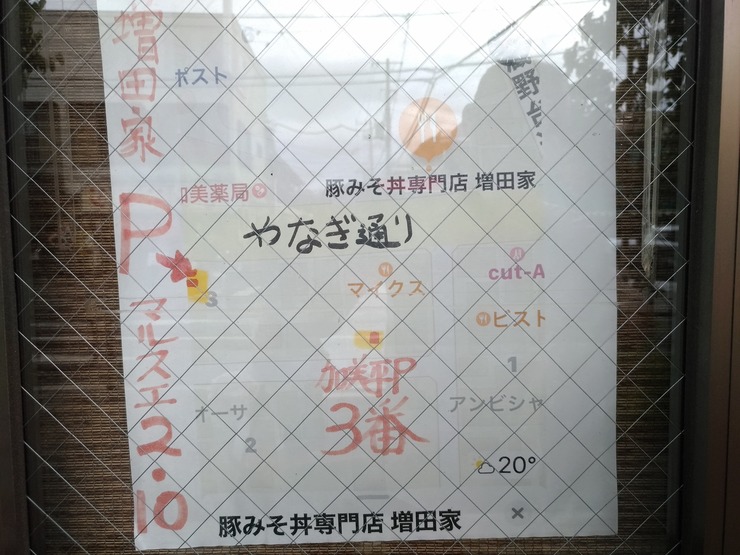 増田家
P
マルスエ2.10
ポスト
美薬局
豚みそ丼専門店 増田家
やなぎ通り
3
マイクス
cut-A
ビスト
1
オーサ
2
3番
アンビシャ
20°
豚みそ丼専門店 増田家
×